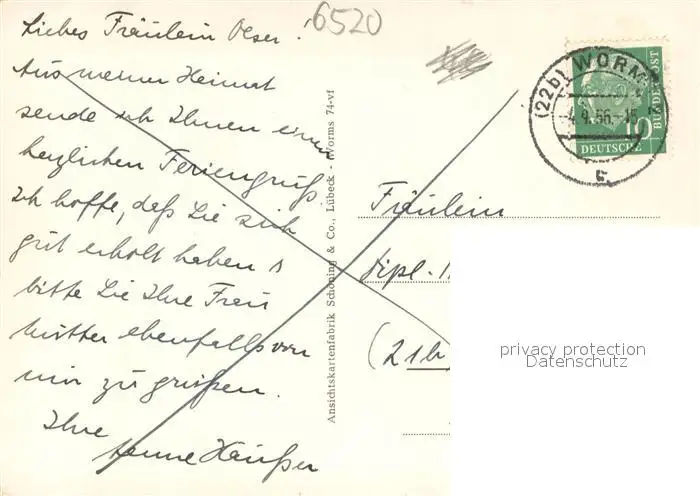 6520
Liebes Fräulein Olser!
Aus meiner Heimat
sende ich Ihnen einen
herzlichen Feriengruß.
Ich hoffe, daß Sie sich
gut erholt haben u
bitte Sie Ihre Frau
Mutter ebenfalls von
mir zu grüßen.
Ihre
Häußer
Ansichtskartenfabrik Schöning & Co., Lübeck - Worms 74-vf
(22b) WORMS
-4.9.56.-15
10
DEUTSCHE
BUNDESPOST
Fräulein
dipl.-
(21b)
privacy protection
Datenschutz